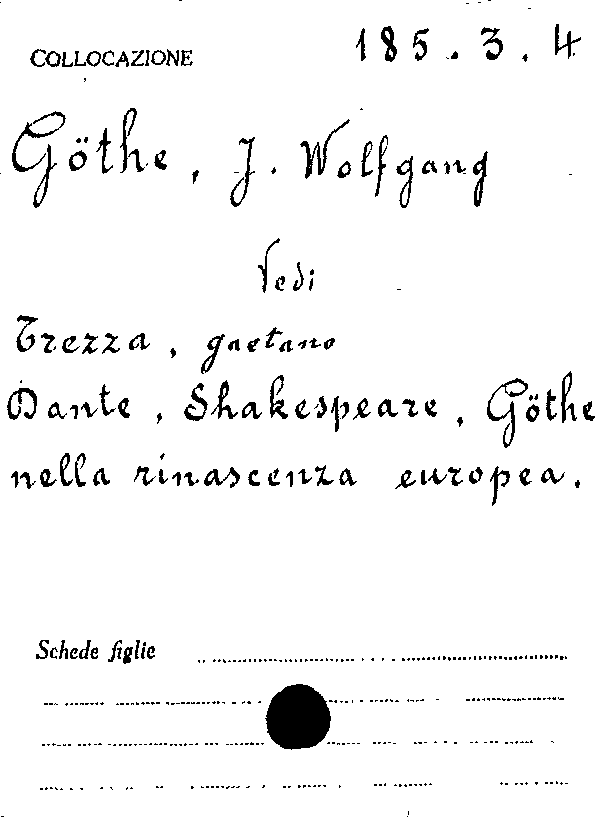 COLLOCAZIONE 185.3.4
Göthe, J. Wolfgang
Vedi
Trezza, gaetano
Dante, Shakespeare, Göthe
nella rinascenza europea.
Schede figlie